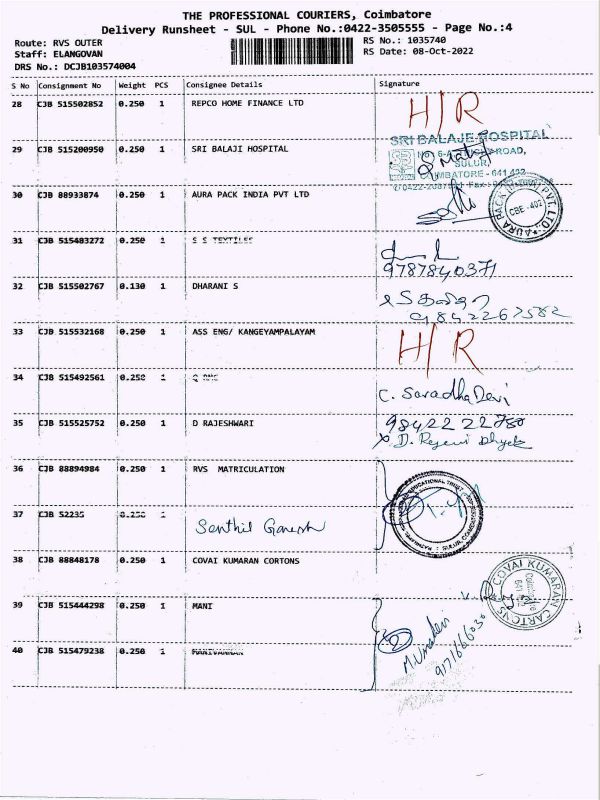 THE PROFESSIONAL COURIERS, Coimbatore
Delivery Runsheet - SUL - Phone No.:0422-3505555 - Page No.:4
Route: RVS OUTER
Staff: ELANGOVAN
DRS No.: DCJB103574004
RS No.: 1035740
RS Date: 08-Oct-2022
S No Consignment No Weight PCS Consignee Details Signature
28 CJB 515502852 0.250 1 REPCO HOME FINANCE LTD H/R
29 CJB 515200950 0.250 1 SRI BALAJI HOSPITAL
SRI BALAJE HOSPITAL
ROAD,
SULUR,
COIMBATORE - 641 402
30 CJB 88933874 0.250 1 AURA PACK INDIA PVT LTD
AURA PACK PVT. LTD.
CBE - 402
31 CJB 515483272 0.250 1 S S TEXTILES
9787840371
32 CJB 515502767 0.130 1 DHARANI S
9842267582
33 CJB 515532168 0.250 1 ASS ENG/ KANGEYAMPALAYAM H/R
34 CJB 515492561 0.250 1
C. SaradhaDevi
35 CJB 515525752 0.250 1 D RAJESHWARI
9842222780
36 CJB 88894984 0.250 1 RVS MATRICULATION
EDUCATIONAL TRUST
37 CJB 52235 0.250 1
Senthil Ganesh
38 CJB 88848178 0.250 1 COVAI KUMARAN CORTONS
COVAI KUMARAN CARTONS
Coimbatore
39 CJB 515444298 0.250 1 MANI
9171666030
40 CJB 515479238 0.250 1 MANIVANNAN